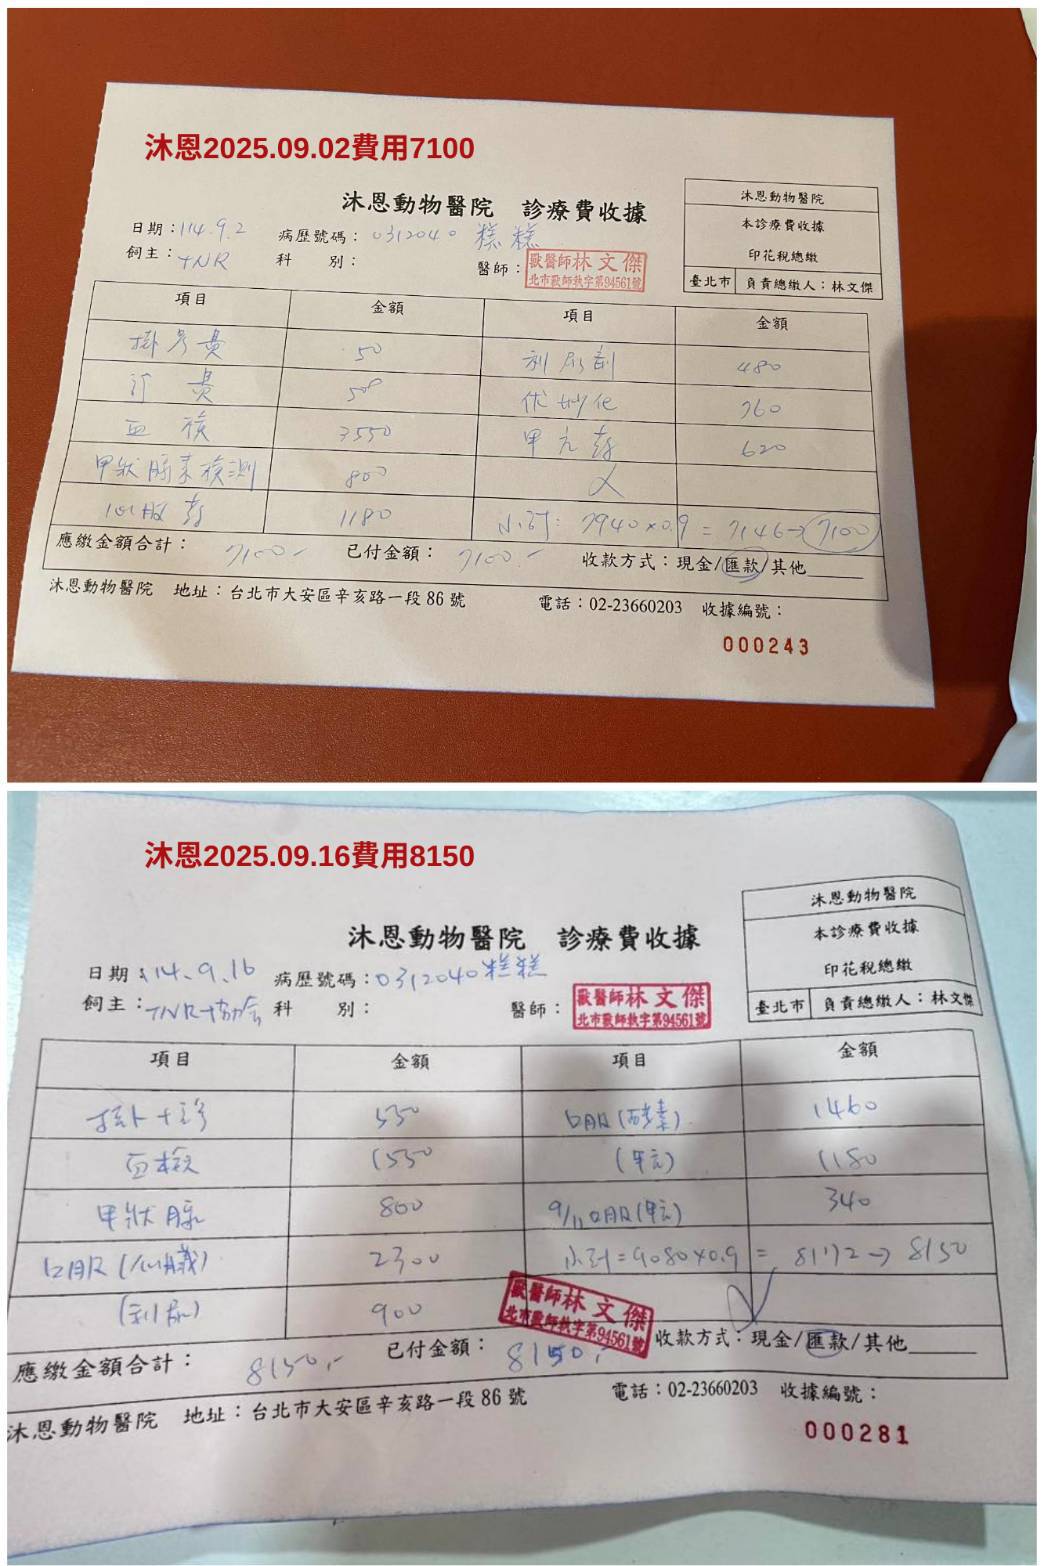 沐恩2025.09.02費用7100
沐恩動物醫院 診療費收據
沐恩動物醫院
本診療費收據
印花稅總繳
臺北市 負責總繳人：林文傑
日期：114.9.2 病歷號碼：0312040 糕糕
飼主：TNR 科 別： 醫師：獸醫師林文傑
北市獸師執字第94561號
項目 金額 項目 金額
掛号費 50 利尿劑 480
診費 500 760
血檢 3550 甲亢藥 620
甲狀腺素檢測 800
心臟藥 1180 小計：7940×0.9=7146→7100
應繳金額合計：7100.- 已付金額：7100.- 收款方式：現金/匯款/其他
沐恩動物醫院 地址：台北市大安區辛亥路一段86號 電話：02-23660203 收據編號：
000243
沐恩2025.09.16費用8150
沐恩動物醫院 診療費收據
沐恩動物醫院
本診療費收據
印花稅總繳
臺北市 負責總繳人：林文傑
日期：114.9.16 病歷號碼：0312040糕糕
飼主：TNR協会 科 別： 醫師：獸醫師林文傑
北市獸師執字第94561號
項目 金額 項目 金額
掛+診 550 口服(酵素) 1460
血檢 1550 (甲亢) 1180
甲狀腺 800 9/11口服(甲亢) 340
口服 2300 小計=9080×0.9 = 8172→8150
(利尿) 900
獸醫師林文傑
北市獸師執字第94561號
應繳金額合計：8150.- 已付金額：8150.- 收款方式：現金/匯款/其他
沐恩動物醫院 地址：台北市大安區辛亥路一段86號 電話：02-23660203 收據編號：
000281